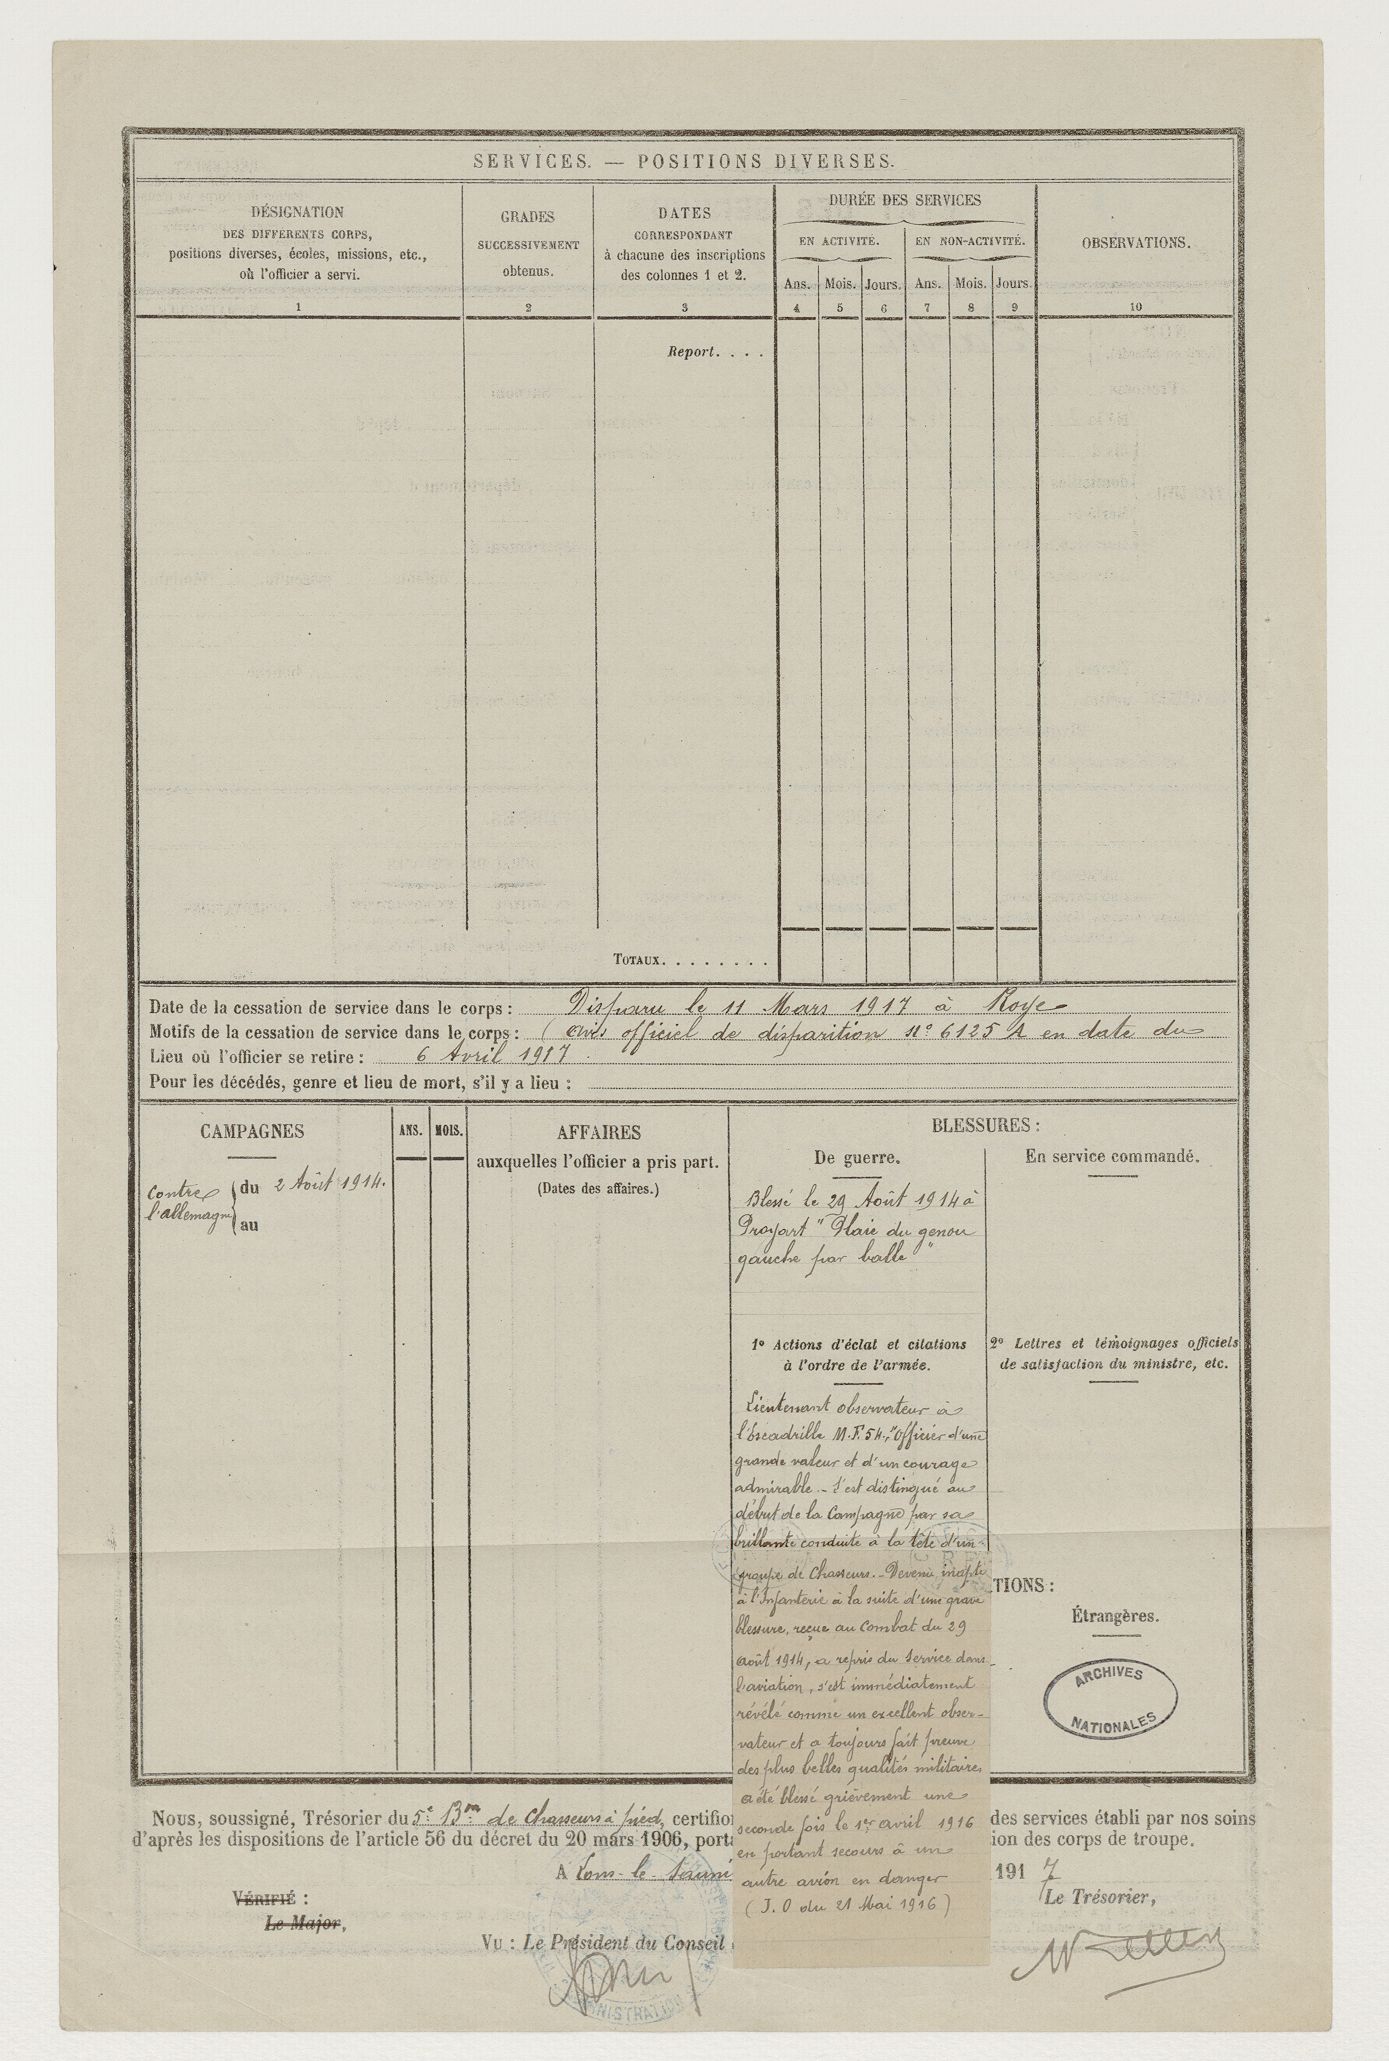 SERVICES. — POSITIONS DIVERSES.
DÉSIGNATION
DES DIFFÉRENTS CORPS,
positions diverses, écoles, missions, etc.,
où l'officier a servi.
1
GRADES
SUCCESSIVEMENT
obtenus.
2
DATES
CORRESPONDANT
à chacune des inscriptions
des colonnes 1 et 2.
3
DURÉE DES SERVICES
EN ACTIVITÉ.
EN NON-ACTIVITÉ.
Ans. Mois. Jours. Ans. Mois. Jours.
4 5 6 7 8 9
OBSERVATIONS.
10
Report. . . .
TOTAUX. . . . . . . .
Date de la cessation de service dans le corps : Disparu le 11 Mars 1917 à Roye
Motifs de la cessation de service dans le corps : (avis officiel de disparition n° 6125 A en date du
Lieu où l'officier se retire : 6 Avril 1917.
Pour les décédés, genre et lieu de mort, s'il y a lieu :
CAMPAGNES
ANS. MOIS.
contre
l'allemagne
du 2 Août 1914.
au
AFFAIRES
auxquelles l'officier a pris part.
(Dates des affaires.)
BLESSURES :
De guerre.
Blessé le 29 Août 1914 à
Proyart "Plaie du genou
gauche par balle"
En service commandé.
1° Actions d'éclat et citations
à l'ordre de l'armée.
Lieutenant observateur à
l'Escadrille M.F. 54., "Officier d'une
grande valeur et d'un courage
admirable. - S'est distingué au
début de la Campagne par sa
brillante conduite à la tête d'un
groupe de Chasseurs. - Devenu inapte
à l'Infanterie à la suite d'une grave
blessure, reçue au combat du 29
août 1914, a repris du service dans
l'aviation, s'est immédiatement
révélé comme un excellent obser-
vateur et a toujours fait preuve
des plus belles qualités militaires
a été blessé grièvement une
seconde fois le 1er avril 1916
en portant secours à un
autre avion en danger
(J.O du 21 Mai 1916)
2° Lettres et témoignages officiels
de satisfaction du ministre, etc.
TIONS :
Étrangères.
ARCHIVES
NATIONALES
NOUS, soussigné, Trésorier du 5e Bon de Chasseurs à pied, certifio des services établi par nos soins
d'après les dispositions de l'article 56 du décret du 20 mars 1906, porta ion des corps de troupe.
A Lons-le-Sauni 1917
VÉRIFIÉ :
Le Major,
Le Trésorier,
VU : Le Président du Conseil